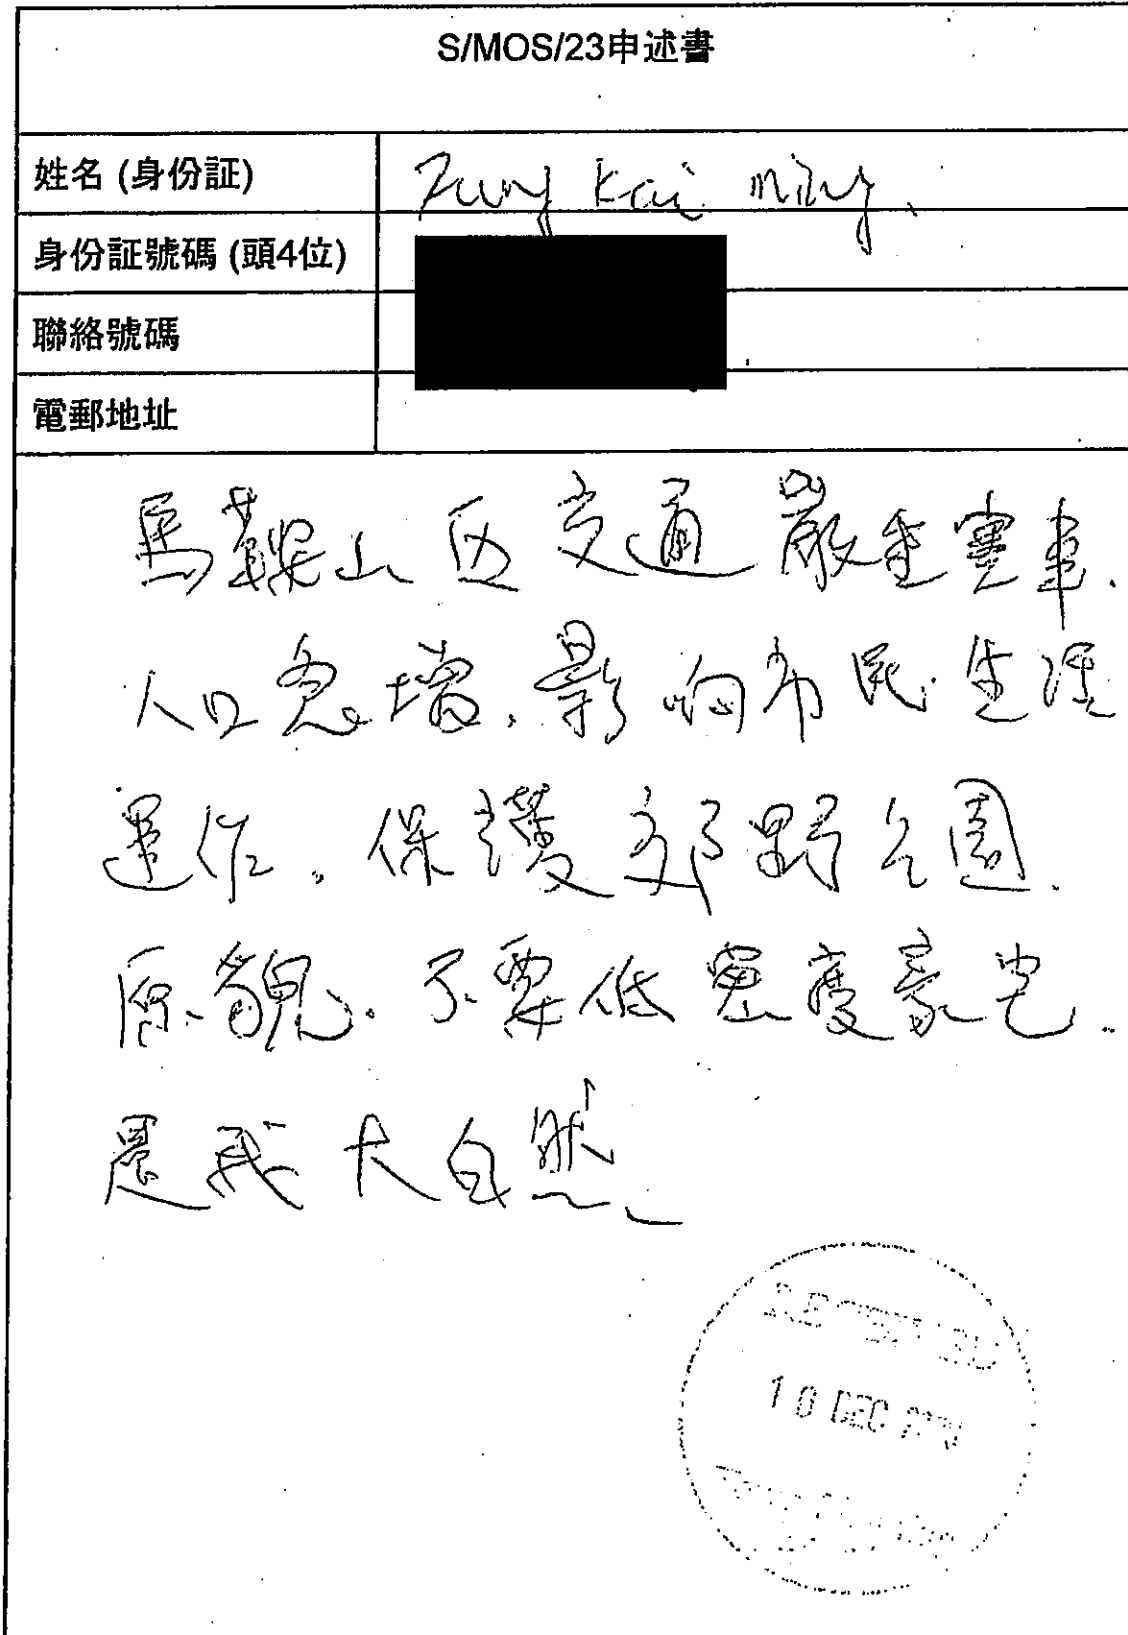 S/MOS/23申述書
姓名 (身份証) Kai ming
身份証號碼 (頭4位)
聯絡號碼
電郵地址
馬鞍山區交通嚴重塞車.
人口急增,影响市民生活
運作。保護郊野公園
原貌.不要低密度豪宅.
還我大自然
10 DEC